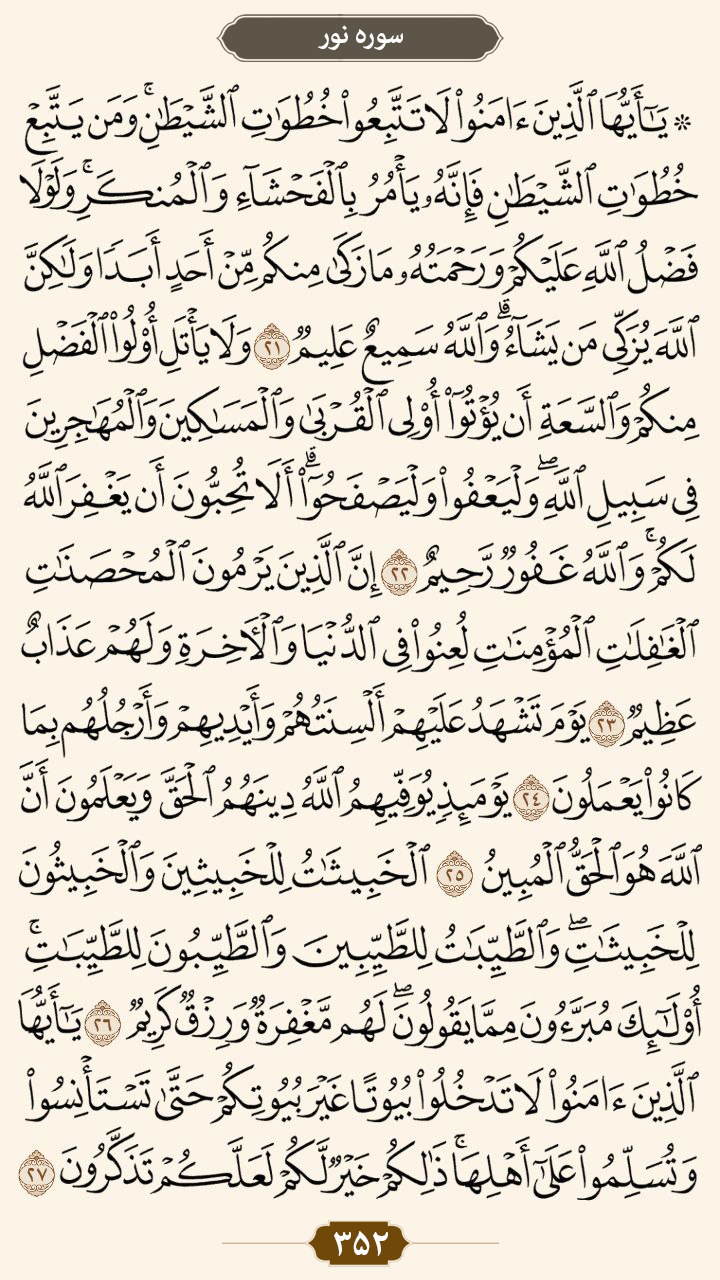 سوره نور
۞ يَـٰٓأَيُّهَا ٱلَّذِينَ ءَامَنُوا۟ لَا تَتَّبِعُوا۟ خُطُوَٰتِ ٱلشَّيْطَـٰنِ ۚ وَمَن يَتَّبِعْ
خُطُوَٰتِ ٱلشَّيْطَـٰنِ فَإِنَّهُۥ يَأْمُرُ بِٱلْفَحْشَآءِ وَٱلْمُنكَرِ ۚ وَلَوْلَا
فَضْلُ ٱللَّهِ عَلَيْكُمْ وَرَحْمَتُهُۥ مَا زَكَىٰ مِنكُم مِّنْ أَحَدٍ أَبَدًا وَلَـٰكِنَّ
ٱللَّهَ يُزَكِّى مَن يَشَآءُ ۗ وَٱللَّهُ سَمِيعٌ عَلِيمٌ ٢١ وَلَا يَأْتَلِ أُو۟لُوا۟ ٱلْفَضْلِ
مِنكُمْ وَٱلسَّعَةِ أَن يُؤْتُوٓا۟ أُو۟لِى ٱلْقُرْبَىٰ وَٱلْمَسَـٰكِينَ وَٱلْمُهَـٰجِرِينَ
فِى سَبِيلِ ٱللَّهِ ۖ وَلْيَعْفُوا۟ وَلْيَصْفَحُوٓا۟ ۗ أَلَا تُحِبُّونَ أَن يَغْفِرَ ٱللَّهُ
لَكُمْ ۚ وَٱللَّهُ غَفُورٌ رَّحِيمٌ ٢٢ إِنَّ ٱلَّذِينَ يَرْمُونَ ٱلْمُحْصَنَـٰتِ
ٱلْغَـٰفِلَـٰتِ ٱلْمُؤْمِنَـٰتِ لُعِنُوا۟ فِى ٱلدُّنْيَا وَٱلْـَٔاخِرَةِ وَلَهُمْ عَذَابٌ
عَظِيمٌ ٢٣ يَوْمَ تَشْهَدُ عَلَيْهِمْ أَلْسِنَتُهُمْ وَأَيْدِيهِمْ وَأَرْجُلُهُم بِمَا
كَانُوا۟ يَعْمَلُونَ ٢٤ يَوْمَئِذٍ يُوَفِّيهِمُ ٱللَّهُ دِينَهُمُ ٱلْحَقَّ وَيَعْلَمُونَ أَنَّ
ٱللَّهَ هُوَ ٱلْحَقُّ ٱلْمُبِينُ ٢٥ ٱلْخَبِيثَـٰتُ لِلْخَبِيثِينَ وَٱلْخَبِيثُونَ
لِلْخَبِيثَـٰتِ ۖ وَٱلطَّيِّبَـٰتُ لِلطَّيِّبِينَ وَٱلطَّيِّبُونَ لِلطَّيِّبَـٰتِ ۚ
أُو۟لَـٰٓئِكَ مُبَرَّءُونَ مِمَّا يَقُولُونَ ۖ لَهُم مَّغْفِرَةٌ وَرِزْقٌ كَرِيمٌ ٢٦ يَـٰٓأَيُّهَا
ٱلَّذِينَ ءَامَنُوا۟ لَا تَدْخُلُوا۟ بُيُوتًا غَيْرَ بُيُوتِكُمْ حَتَّىٰ تَسْتَأْنِسُوا۟
وَتُسَلِّمُوا۟ عَلَىٰٓ أَهْلِهَا ۚ ذَٰلِكُمْ خَيْرٌ لَّكُمْ لَعَلَّكُمْ تَذَكَّرُونَ ٢٧
۳۵۲